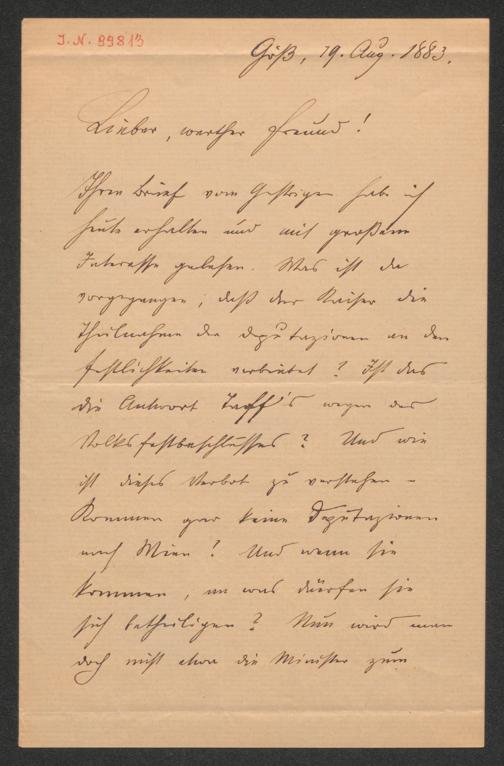 I.N. 89813
Göß, 19. Aug. 1883.
Lieber, werther Freund!
Ihren Brief vom Gestrigen habe ich
heute erhalten und mit großem
Interesse gelesen. Was ist da
vorgegangen, daß der Kaiser die
Theilnahme der Deputazionen an den
Festlichkeiten verbietet? Ist das
die Antwort Taaff's wegen des
Volksfestbeschlusses? Und wie
ist dieses Verbot zu verstehen –
Kommen gar keine Deputazionen
nach Wien? Und wenn sie
kommen, an was dürfen sie
sich betheiligen? Nun wird man
doch nicht etwa die Minister zum